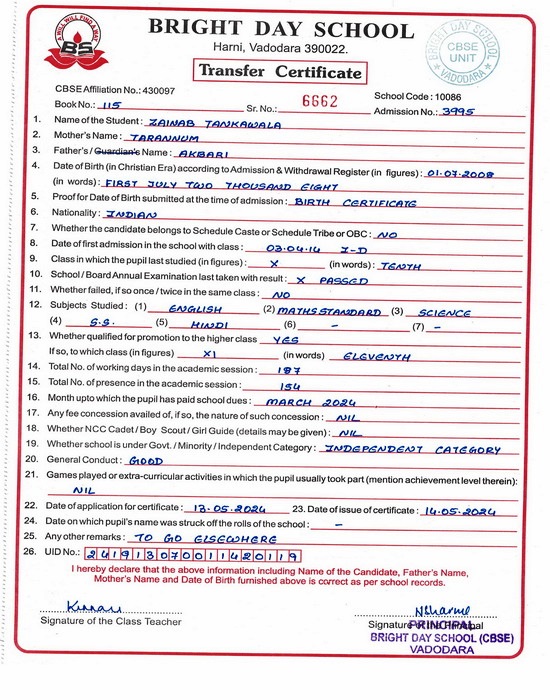 A WILL WILL FIND A WAY
BS
BRIGHT DAY SCHOOL
Harni, Vadodara 390022.
Transfer Certificate
BRIGHT DAY SCHOOL
CBSE
UNIT
VADODARA
CBSE Affiliation No.: 430097
School Code : 10086
Book No.: 115 Sr. No.: 6662 Admission No.: 3995
1. Name of the Student : ZAINAB TANKAWALA
2. Mother's Name : TARANNUM
3. Father's / Guardian's Name : AKBARI
4. Date of Birth (in Christian Era) according to Admission & Withdrawal Register (in figures) : 01.07.2008
(in words) : FIRST JULY TWO THOUSAND EIGHT
5. Proof for Date of Birth submitted at the time of admission : BIRTH CERTIFICATE
6. Nationality : INDIAN
7. Whether the candidate belongs to Schedule Caste or Schedule Tribe or OBC : NO
8. Date of first admission in the school with class : 03.04.14 I-D
9. Class in which the pupil last studied (in figures) : X (in words) : TENTH
10. School / Board Annual Examination last taken with result : X PASSED
11. Whether failed, if so once / twice in the same class : NO
12. Subjects Studied : (1) ENGLISH (2) MATHS STANDARD (3) SCIENCE
(4) S.S. (5) HINDI (6) - (7) -
13. Whether qualified for promotion to the higher class YES
If so, to which class (in figures) XI (in words) ELEVENTH
14. Total No. of working days in the academic session : 187
15. Total No. of presence in the academic session : 154
16. Month upto which the pupil has paid school dues : MARCH 2024
17. Any fee concession availed of, if so, the nature of such concession : NIL
18. Whether NCC Cadet / Boy Scout / Girl Guide (details may be given) : NIL
19. Whether school is under Govt. / Minority / Independent Category : INDEPENDENT CATEGORY
20. General Conduct : GOOD
21. Games played or extra-curricular activities in which the pupil usually took part (mention achievement level therein) :
NIL
22. Date of application for certificate : 13.05.2024 23. Date of issue of certificate : 14.05.2024
24. Date on which pupil's name was struck off the rolls of the school : -
25. Any other remarks : TO GO ELSEWHERE
26. UID No.: 241913070011420119
I hereby declare that the above information including Name of the Candidate, Father's Name,
Mother's Name and Date of Birth furnished above is correct as per school records.
Signature of the Class Teacher
Signature of the Principal
PRINCIPAL
BRIGHT DAY SCHOOL (CBSE)
VADODARA